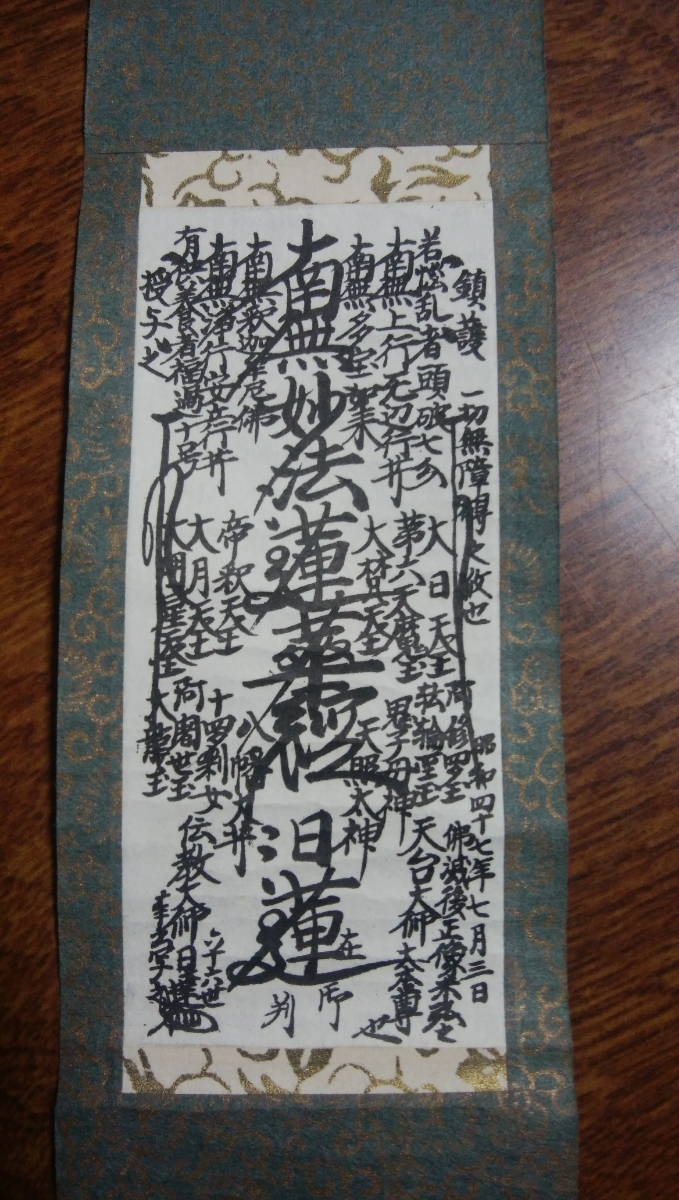 鎮護
一切無障礙之故也
昭和四十七年七月三日
若悩乱者頭破七分
大日天王
阿修羅王
佛滅後正像末弘之
南無上行无辺行井
第六天魔王
転輪聖王
天台大師
南無多宝如来
大梵天王
鬼子母神
天照太神
也
南無妙法蓮華経
日蓮
在
御
判
南無釈迦牟尼佛
帝釈天王
八幡大井
南無浄行安立行井
大月天王
十四刹女
有供養者福過十号
大明星天王
阿闍世王
伝教大師
六十六世
日達
授与之
大龍王
奉書写之